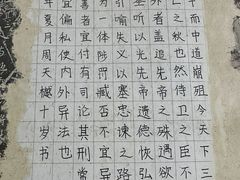 而中道崩殂今天下三
亡之秋也然侍卫之臣不
外者盖追先帝之殊遇欲
圣听以光先帝遗德恢弘
引喻失义以塞忠谏之路
为一体陟罚臧否不宜异
善者宜付有司论其刑赏
宜偏私使内外异法也
年夏月周天樾十岁书